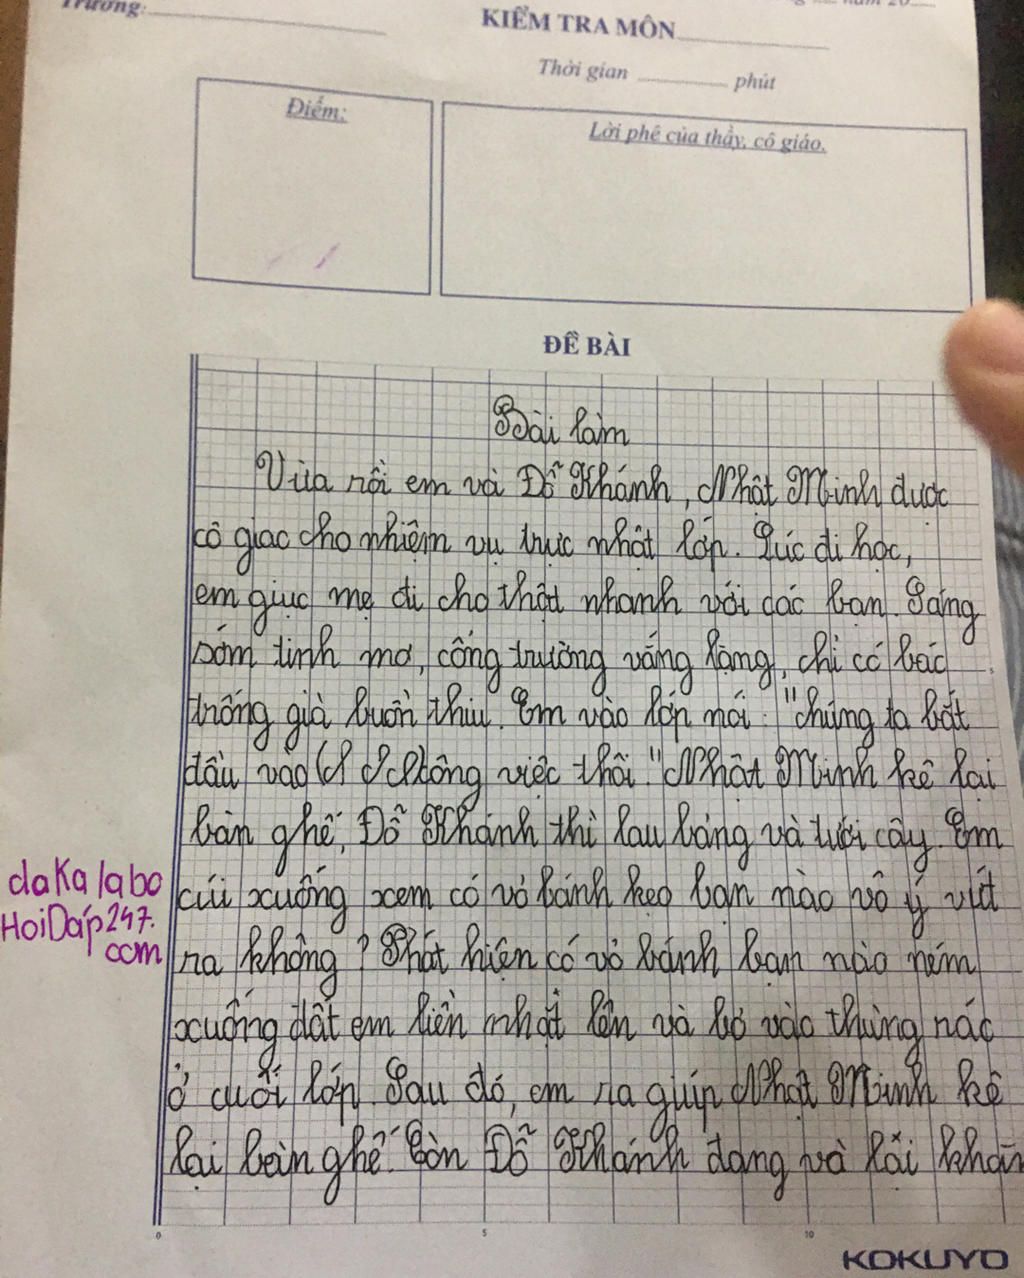 Trường:
năm 20
KIỂM TRA MÔN
Thời gian phút
Điểm:
Lời phê của thầy, cô giáo.
ĐỀ BÀI
Bài làm
Vừa rồi em và Đỗ Khánh, Nhật Minh được
cô giao cho nhiệm vụ trực nhật lớp. Lúc đi học,
em giục mẹ đi cho thật nhanh với các bạn. Sáng
sớm tinh mơ, cổng trường vắng lặng, chỉ có bác
trống già buồn thiu. Em vào lớp nói: "chúng ta bắt
đầu vào công việc thôi." Nhật Minh kê lại
bàn ghế, Đỗ Khánh thì lau bảng và tưới cây. Em
cúi xuống xem có vỏ bánh kẹo bạn nào vô ý vứt
ra không? Phát hiện có vỏ bánh bạn nào ném
xuống đất em liền nhặt lên và bỏ vào thùng rác
ở cuối lớp. Sau đó, em ra giúp Nhật Minh kê
lại bàn ghế. Còn Đỗ Khánh đang và lãi khăn
daKa labo
HoiDap247.
com
0 5 10
KOKUYO